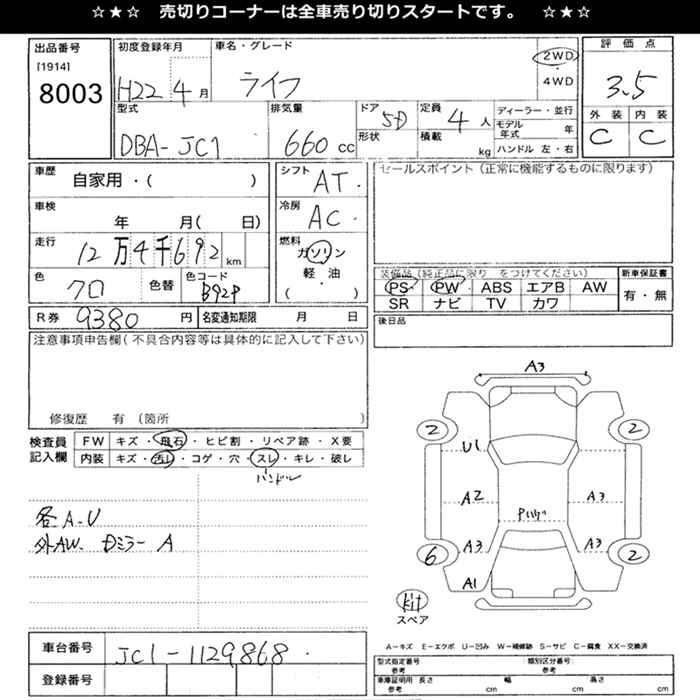 ☆★☆ 売切りコーナーは全車売り切りスタートです。 ☆★☆
出品番号 初度登録年月 車名・グレード 評価点
[1914]
8003 H22 4月 ライフ 2WD 3.5
4WD
型式 排気量 ドア 5D 定員 4人 ディーラー・並行 外装 内装
DBA-JC1 660cc 形状 積載 kg モデル年式 年 C C
ハンドル 左・右
車歴 自家用・( ) シフト AT. セールスポイント(正常に機能するものに限ります)
車検 年 月( 日) 冷房 AC.
走行 12万4千692km 燃料 ガソリン
軽・油
( ・ )
色 クロ 色替 色コード B92P
装備品(純正品に限り をつけてください) 新車保証書
PS PW ABS エアB AW 有・無
SR ナビ TV カワ
R券 9380円 名変通知期限 月 日 後日品
注意事項申告欄(不具合内容等は具体的に記入して下さい)
修復歴 有(箇所 )
検査員 FW キズ・飛石・ヒビ割・リペア跡・X要
記入欄 内装 キズ・汚レ・コゲ・穴・スレ・キレ・破レ
ハンドル
各A.U
外AW. Dミラー A
A3
2 2
U1
A2 A3
A3 A3
6 2
A1
kit
スペア
A-キズ E-エクボ U-凹み W-補修跡 S-サビ C-腐食 XX-交換済
車台番号 JC1-1129868.
登録番号
型式指定番号 参考 類別区分番号 参考
車庫証明用 参考 長さ cm 幅 cm 高さ cm